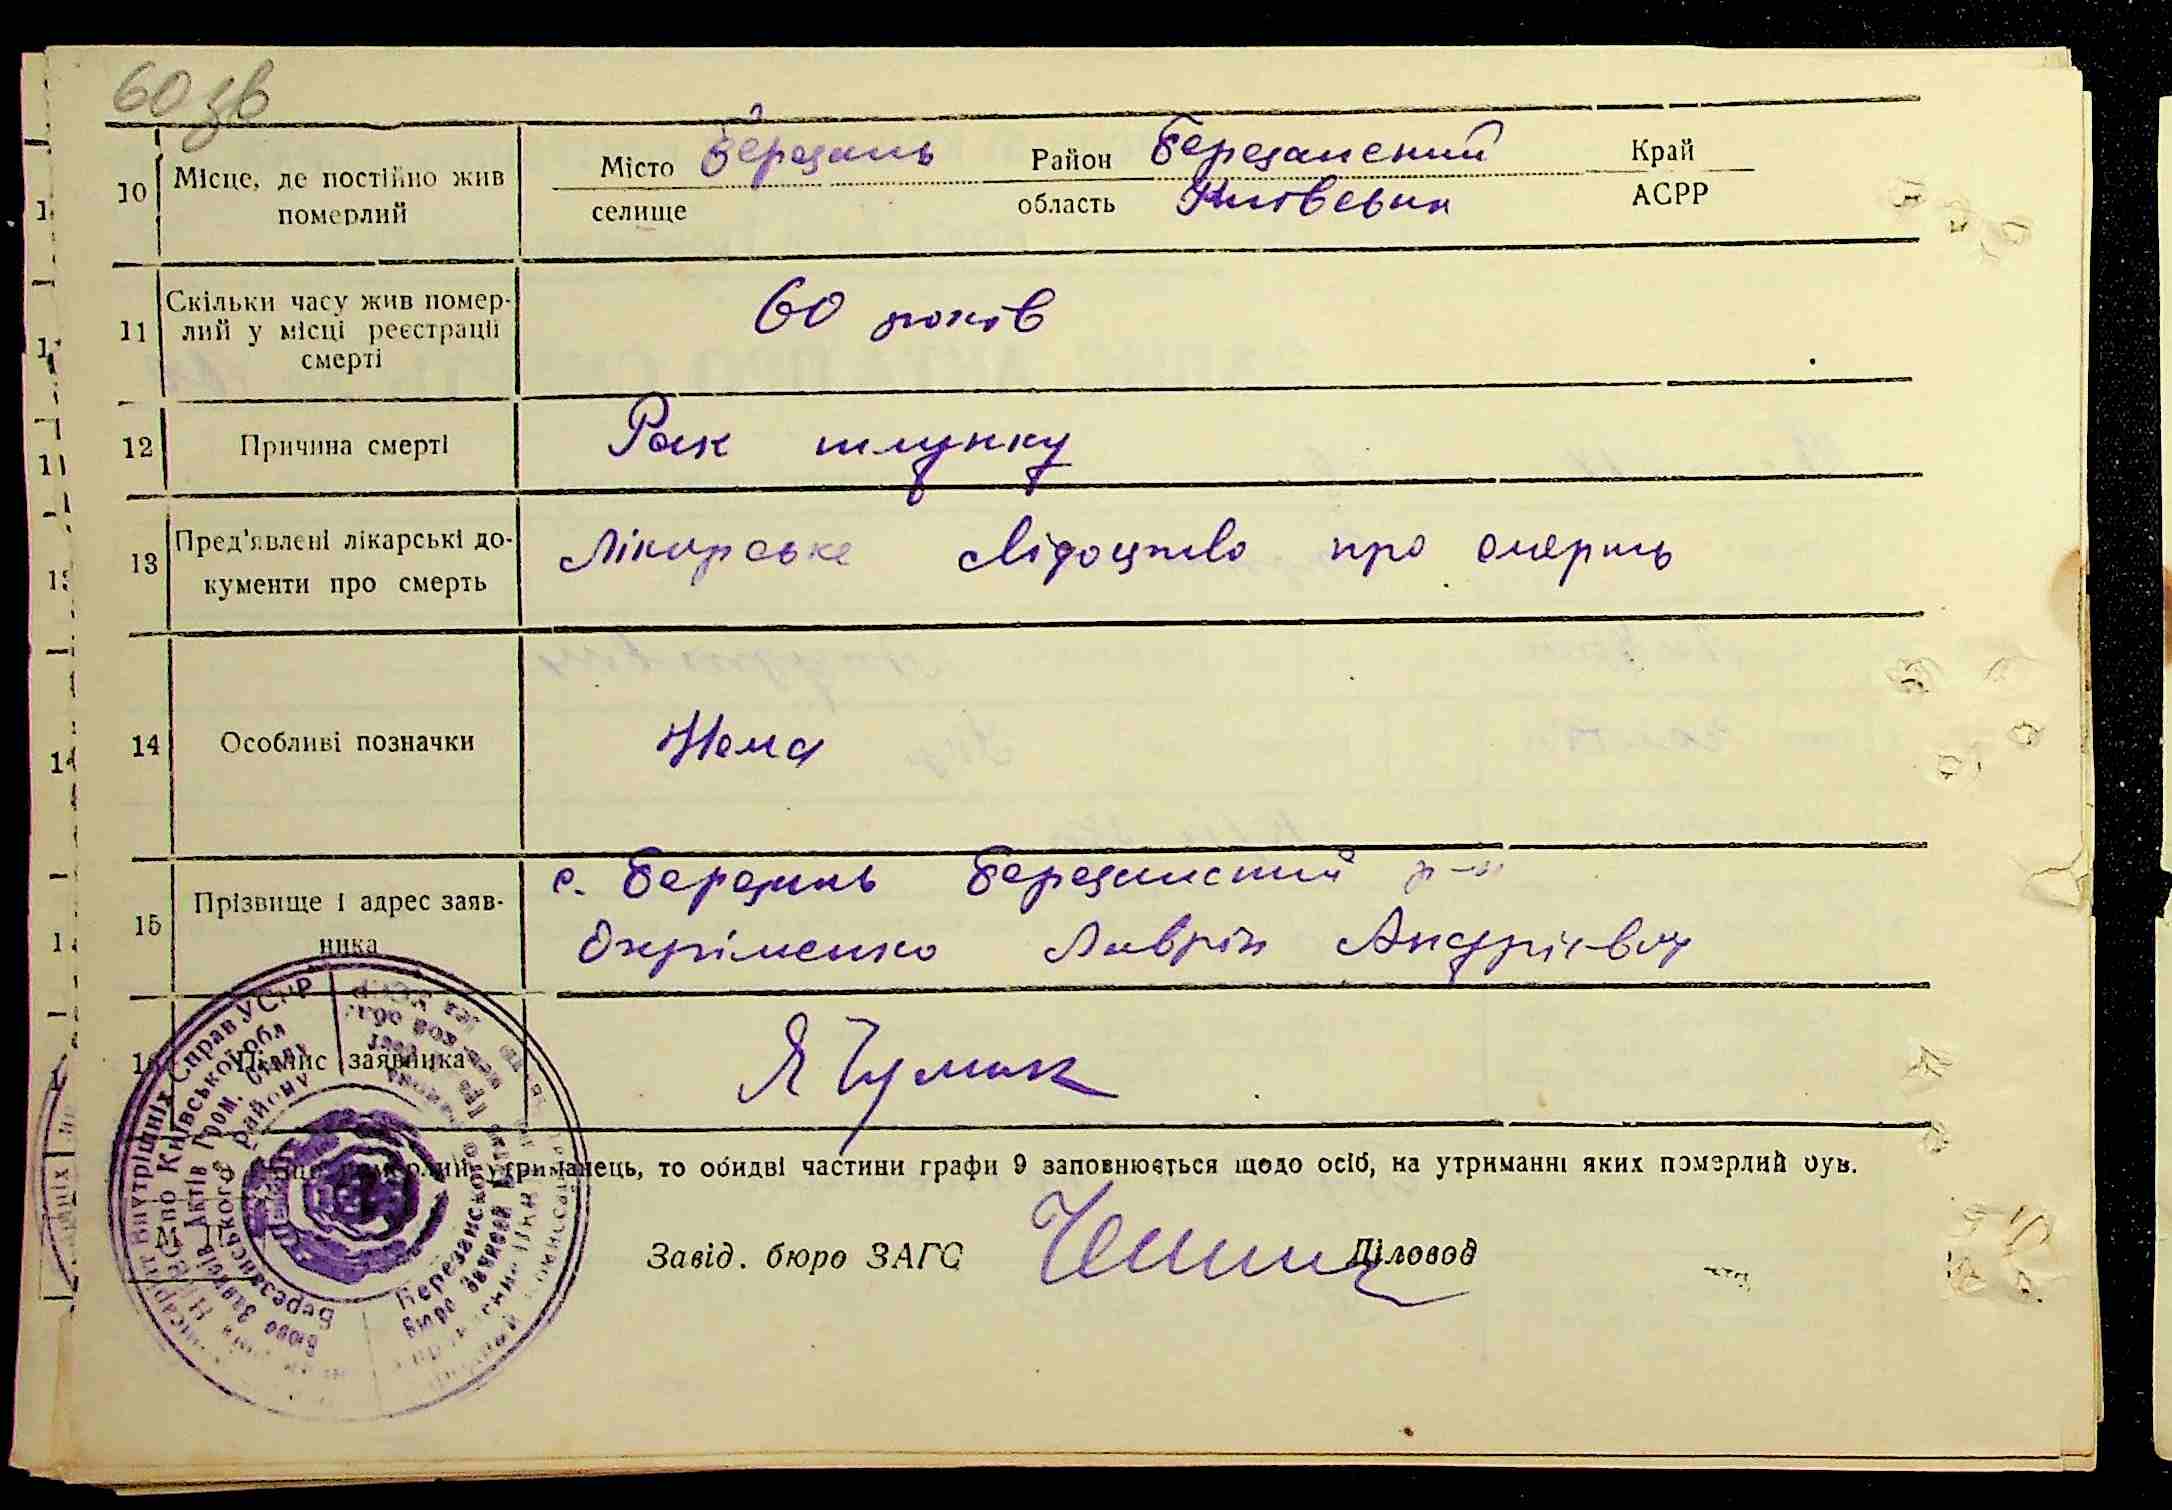 60 зв
10 Місце, де постійно жив
померлий
Місто Березань Район Березанський Край
селище область Київська АСРР
11 Скільки часу жив помер-
лий у місці реєстрації
смерті
60 років
12 Причина смерті Рак шлунку
13 Пред'явлені лікарські до-
кументи про смерть
Лікарське свідоцтво про смерть
14 Особливі позначки Нема
15 Прізвище і адрес заяв-
ника
с. Березань Березанський р-н
Охріменко Лаврін Андрієвич
16 Підпис заявника Я Чумак
померлий утриманець, то обидві частини графи 9 заповнюється щодо осіб, на утриманні яких померлий був.
М. П.
Завід. бюро ЗАГС Діловод
Внутрішніх Справ УСРР
по Київської обл
Бюро Записів Актів Гром. Стану
Березанського району
Березанского